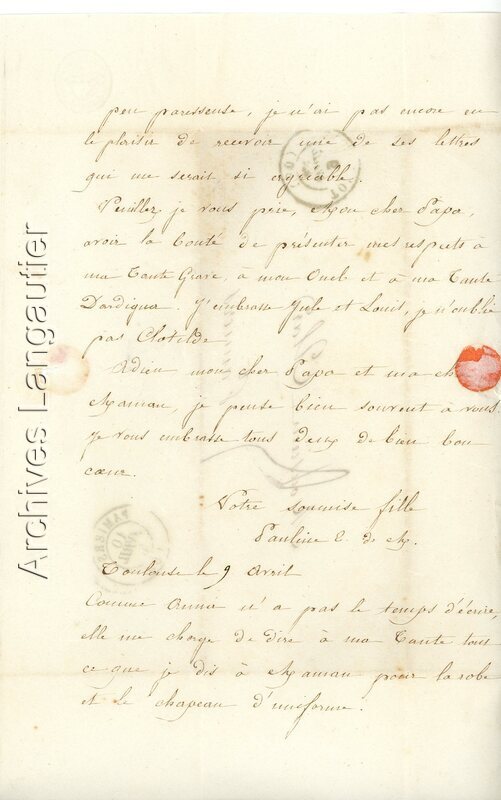 peu paresseuse, je n'ai pas encore eu
le plaisir de recevoir une de ses lettres
qui me serait si agréable.
Veuillez je vous prie, Mon cher Papa,
avoir la bonté de présenter mes respects à
ma Tante Grave, à mon Oncle et à ma Tante
Dardigna. J'embrasse Jule et Louis, je n'oublie
pas Clotilde
Adieu mon cher Papa et ma
Maman, je pense bien souvent à vous
Je vous embrasse tous deux de bien bon
cœur.
Votre soumise fille
Pauline E. de M.
Toulouse le 9 Avril
Comme Anna n'a pas le temps d'écrire,
elle me charge de dire à ma Tante tout
ce que je dis à Maman pour la robe
et le chapeau d'uniforme.
Archives Langautier
PAMIERS